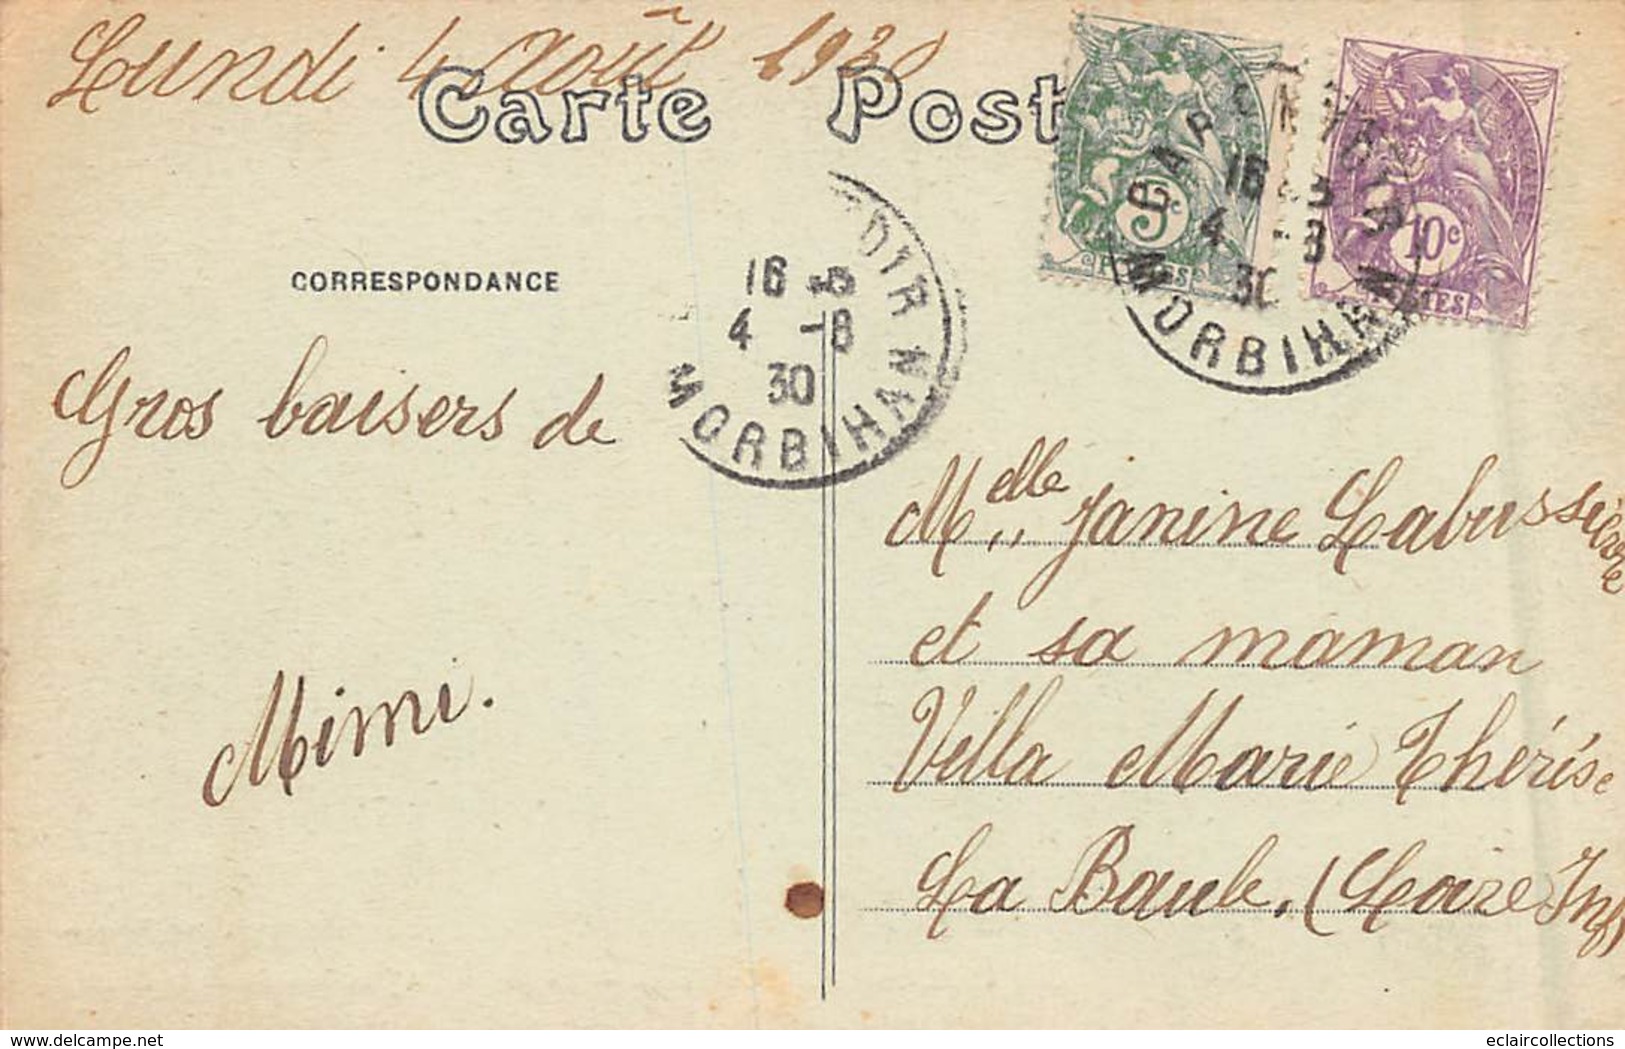 Lundi 4 Août 1930
Carte Post
5c
10c
POSTES
16
4 -8
30
MORBIHAN
16
4 -8
30
MORBIHAN
CORRESPONDANCE
Gros baisers de
Mimi.
Melle Janine Labussière
et sa maman
Villa Marie Thérèse
La Baule. (Loire Inf)
www.delcampe.net
eclaircollections